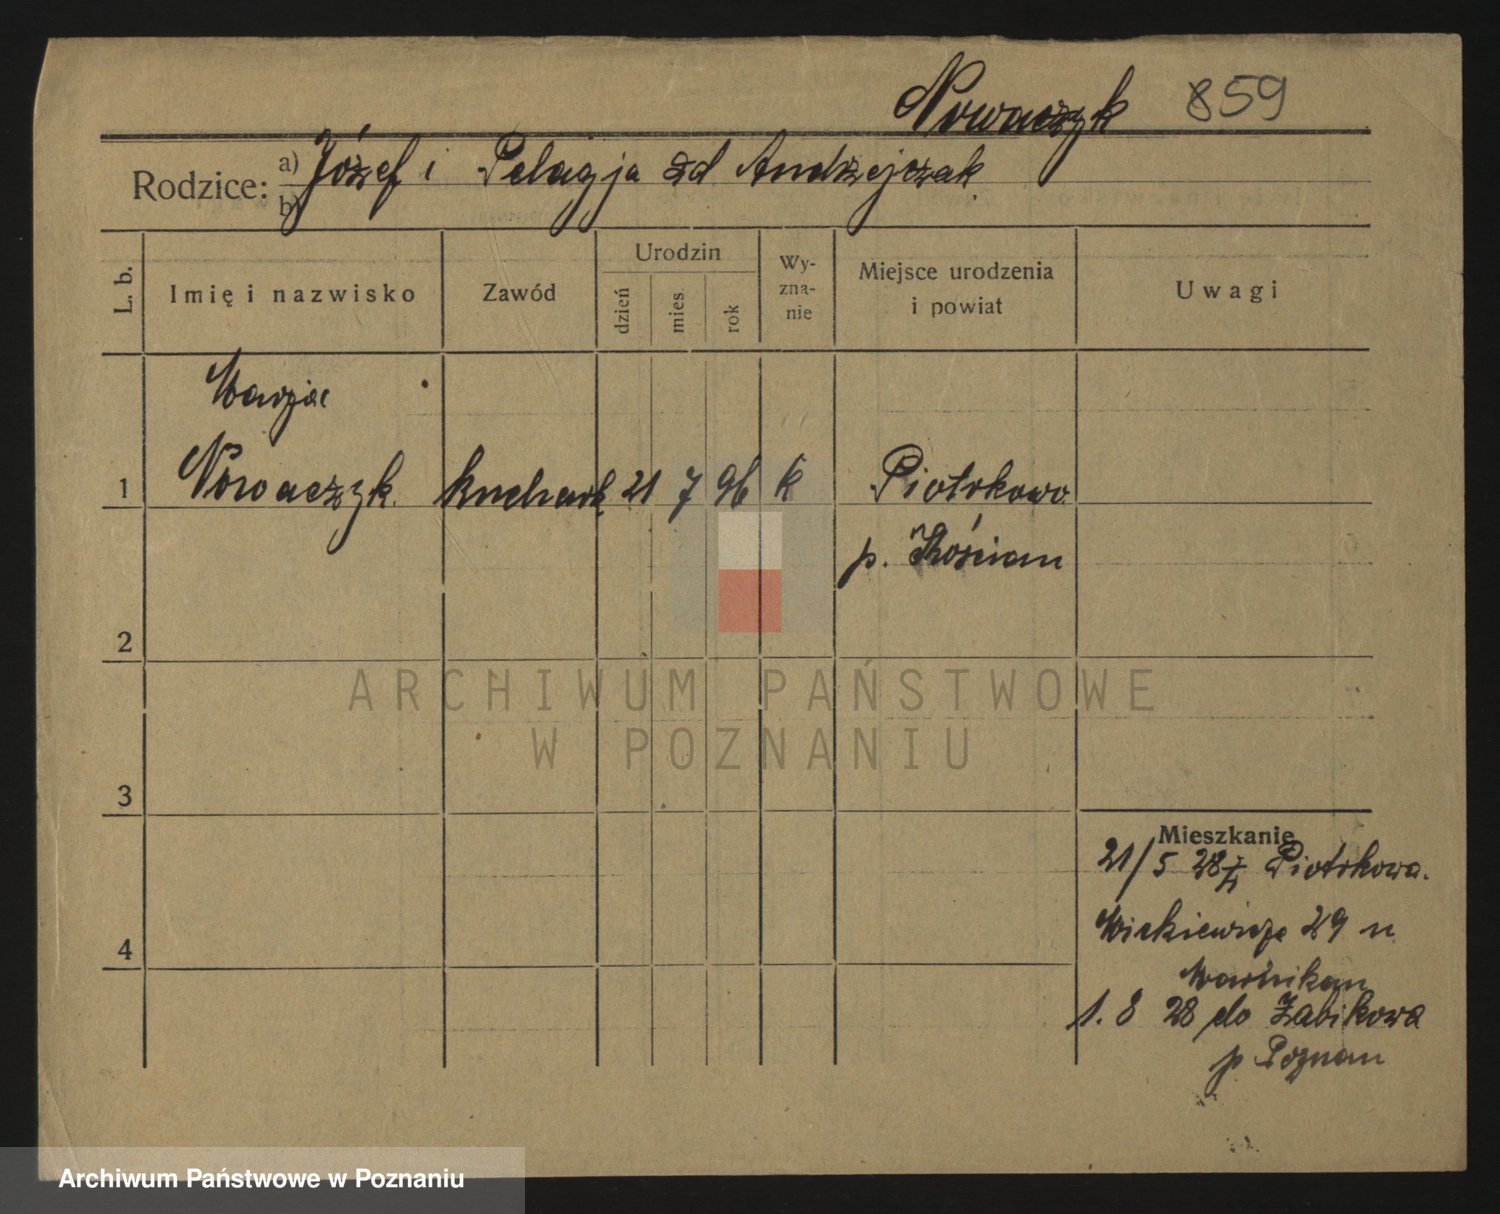 Nowaczyk 859
Rodzice: a) Józef i Pelagja zd Andrzejczak
b)
L. b.
Imię i nazwisko
Zawód
Urodzin
dzień
mies.
rok
Wy-
zna-
nie
Miejsce urodzenia
i powiat
Uwagi
Marja
1 Nowaczyk kuchark. 21 7 96 k Piotrkowo
p. Kościan
2
ARCHIWUM PAŃSTWOWE
W POZNANIU
3
Mieszkanie
21/5 28 z Piotrkowa.
4 Mickiewicza 29 u
1. 8 28 do Żabikowa
p Poznan
Archiwum Państwowe w Poznaniu